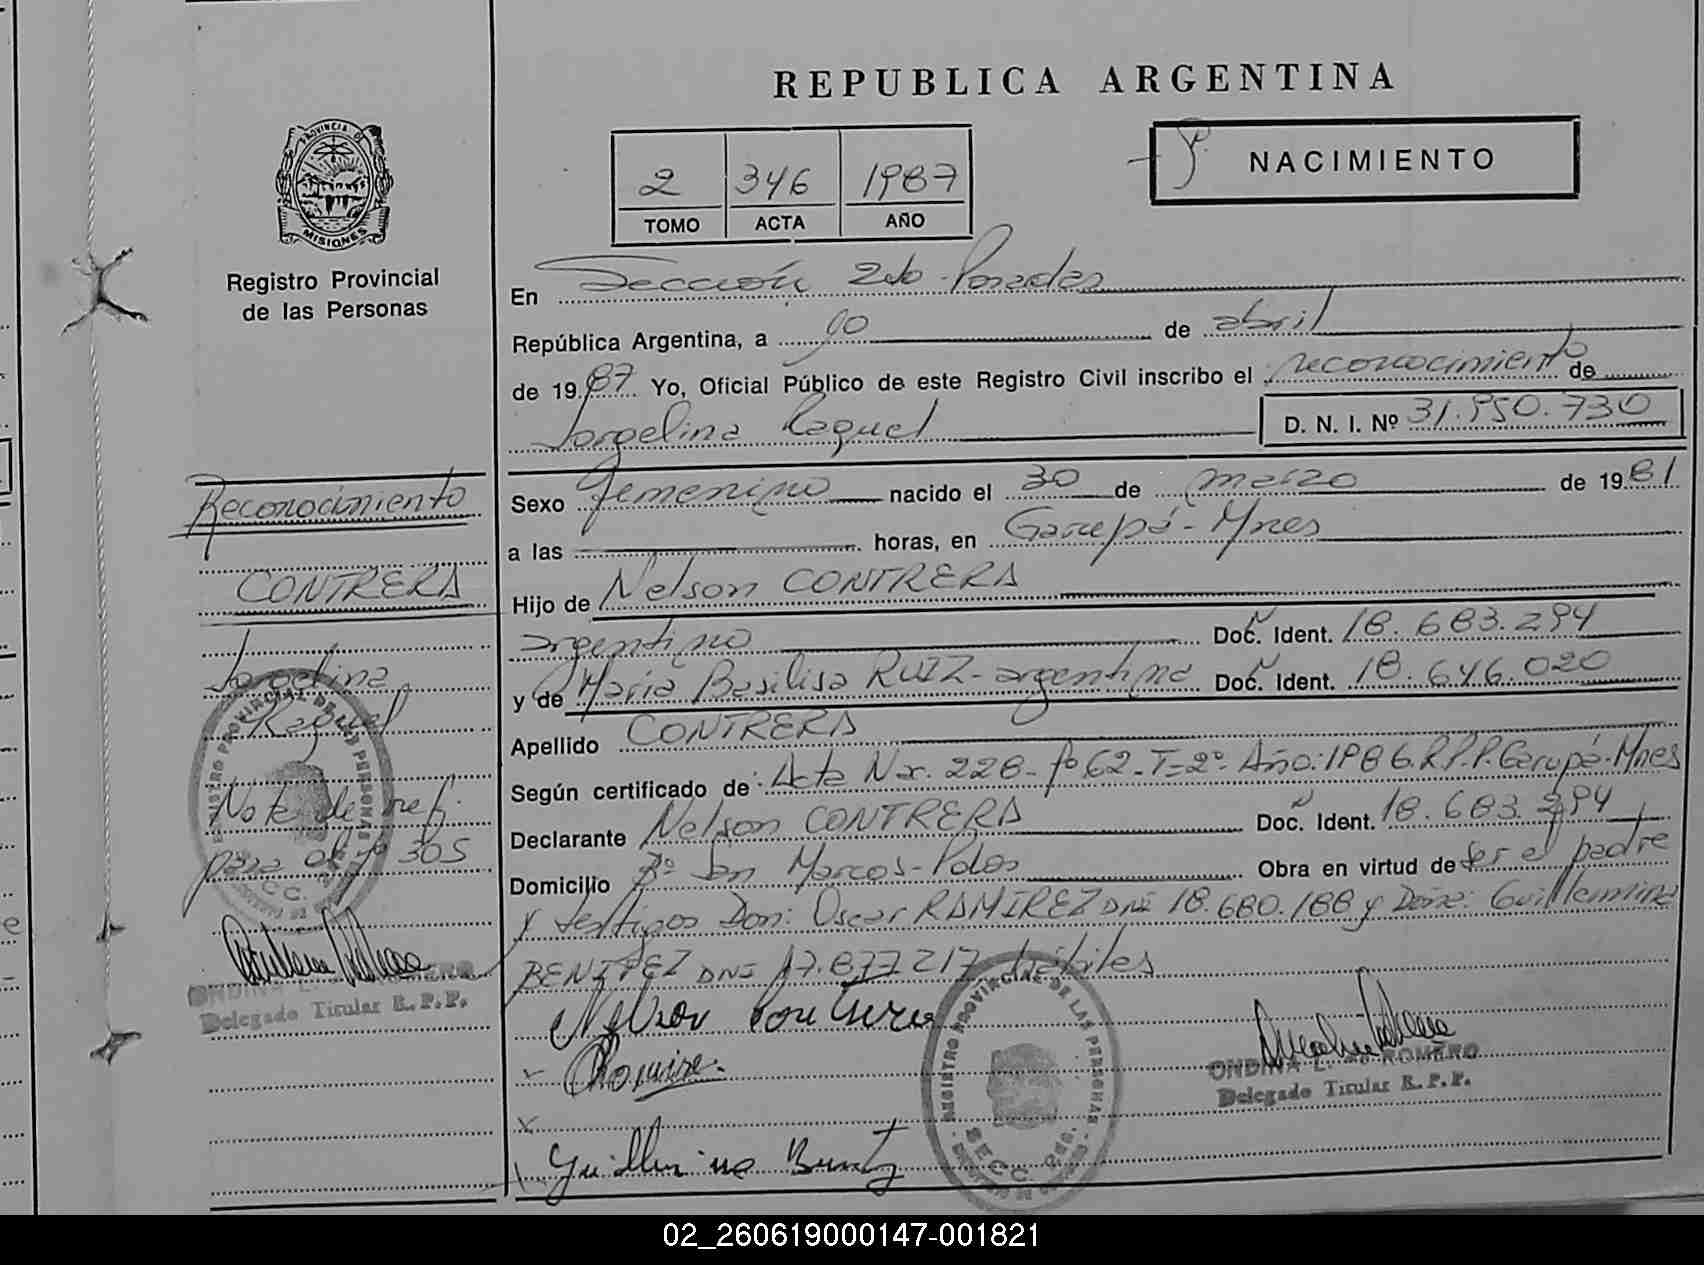 REPUBLICA ARGENTINA
PROVINCIA DE
MISIONES
Registro Provincial
de las Personas
2 346 1987
TOMO ACTA AÑO
NACIMIENTO
En Sección 2da Posadas
República Argentina, a 10 de abril
de 1987 Yo, Oficial Público de este Registro Civil inscribo el reconocimiento de
Jorgelina Raquel D. N. I. Nº 31.950.730
Sexo femenino nacido el 30 de marzo de 1981
a las horas, en Garupá - Mnes
Hijo de Nelson CONTRERA
argentino Doc. Ident. 18.683.294
y de María Basilisa RUIZ - argentina Doc. Ident. 18.646.020
Apellido CONTRERA
Según certificado de: Acta Nr. 228 - fº 62 - T=2º Año: 1986 R.P.P. Garupá-Mnes
Declarante Nelson CONTRERA Doc. Ident. 18.683.294
Domicilio Bº San Marcos - Pdas Obra en virtud de ser el padre
y testigos Don: Oscar RAMIREZ DNI 18.680.188 y Doña: Guillermina
BENITEZ DNI 17.877.217 hábiles
Nelson Contrera
Guillermina Benitez
REGISTRO PROVINCIAL DE LAS PERSONAS
SECC. 2da.
ONDINA L. ROMERO
Delegado Titular R.P.P.
Reconocimiento
CONTRERA
Jorgelina
Raquel
Nota de ref.
para al fº 305
REGISTRO PROVINCIAL DE LAS PERSONAS
ONDINA L. ROMERO
Delegado Titular R.P.P.
02_260619000147-001821